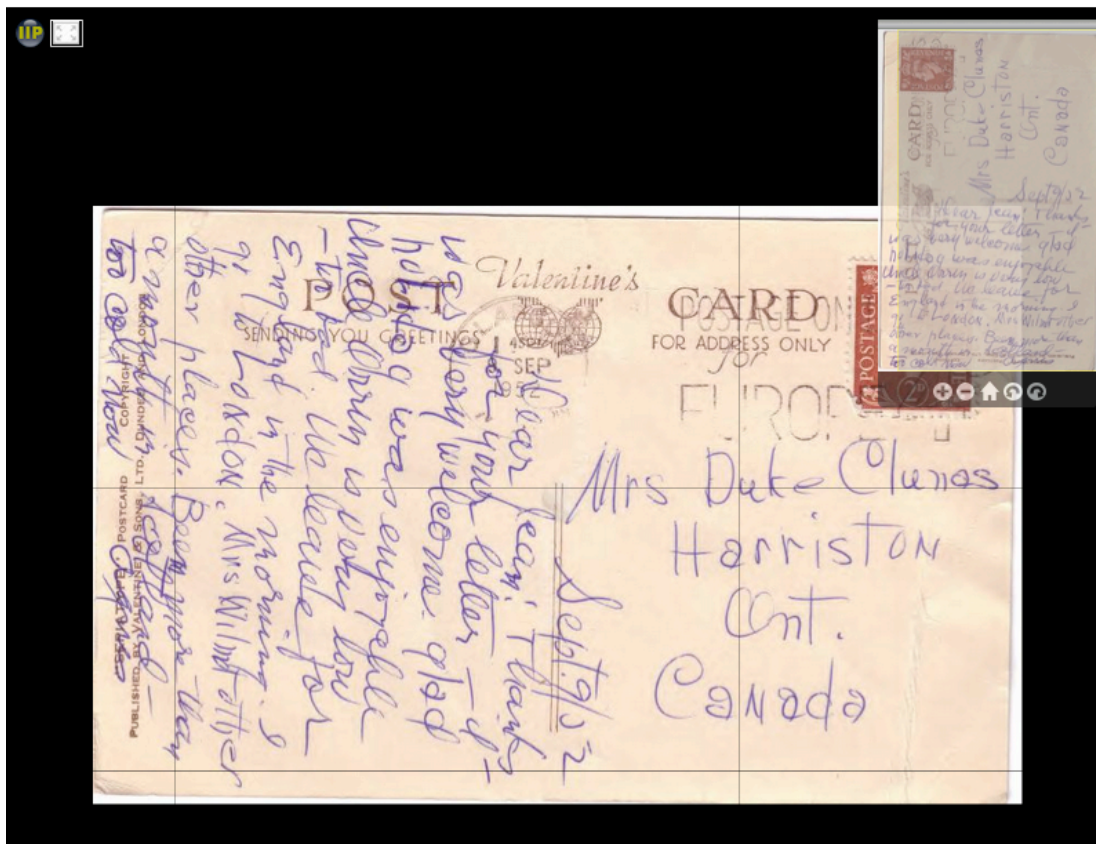 IIP
Valentine's
POST CARD
SENDING YOU GREETINGS
FOR ADDRESS ONLY
SEP
1952
POSTAGE ON
for
EUROP
POSTAGE
Mrs Duke Clunas
Harriston
Ont.
Canada
Sept. 9/52
Dear Jean: Thanks
for your letter - it
was very welcome. glad
holiday was enjoyable
Uncle is very low
- tired. We leave for
England in the morning. I
go to London, Mrs Wilm other
other places. Been more than
a month in Scotland -
too cold now
COPYRIGHT
POSTCARD
PUBLISHED BY VALENTINE & SONS, LTD., DUNDEE AND LONDON